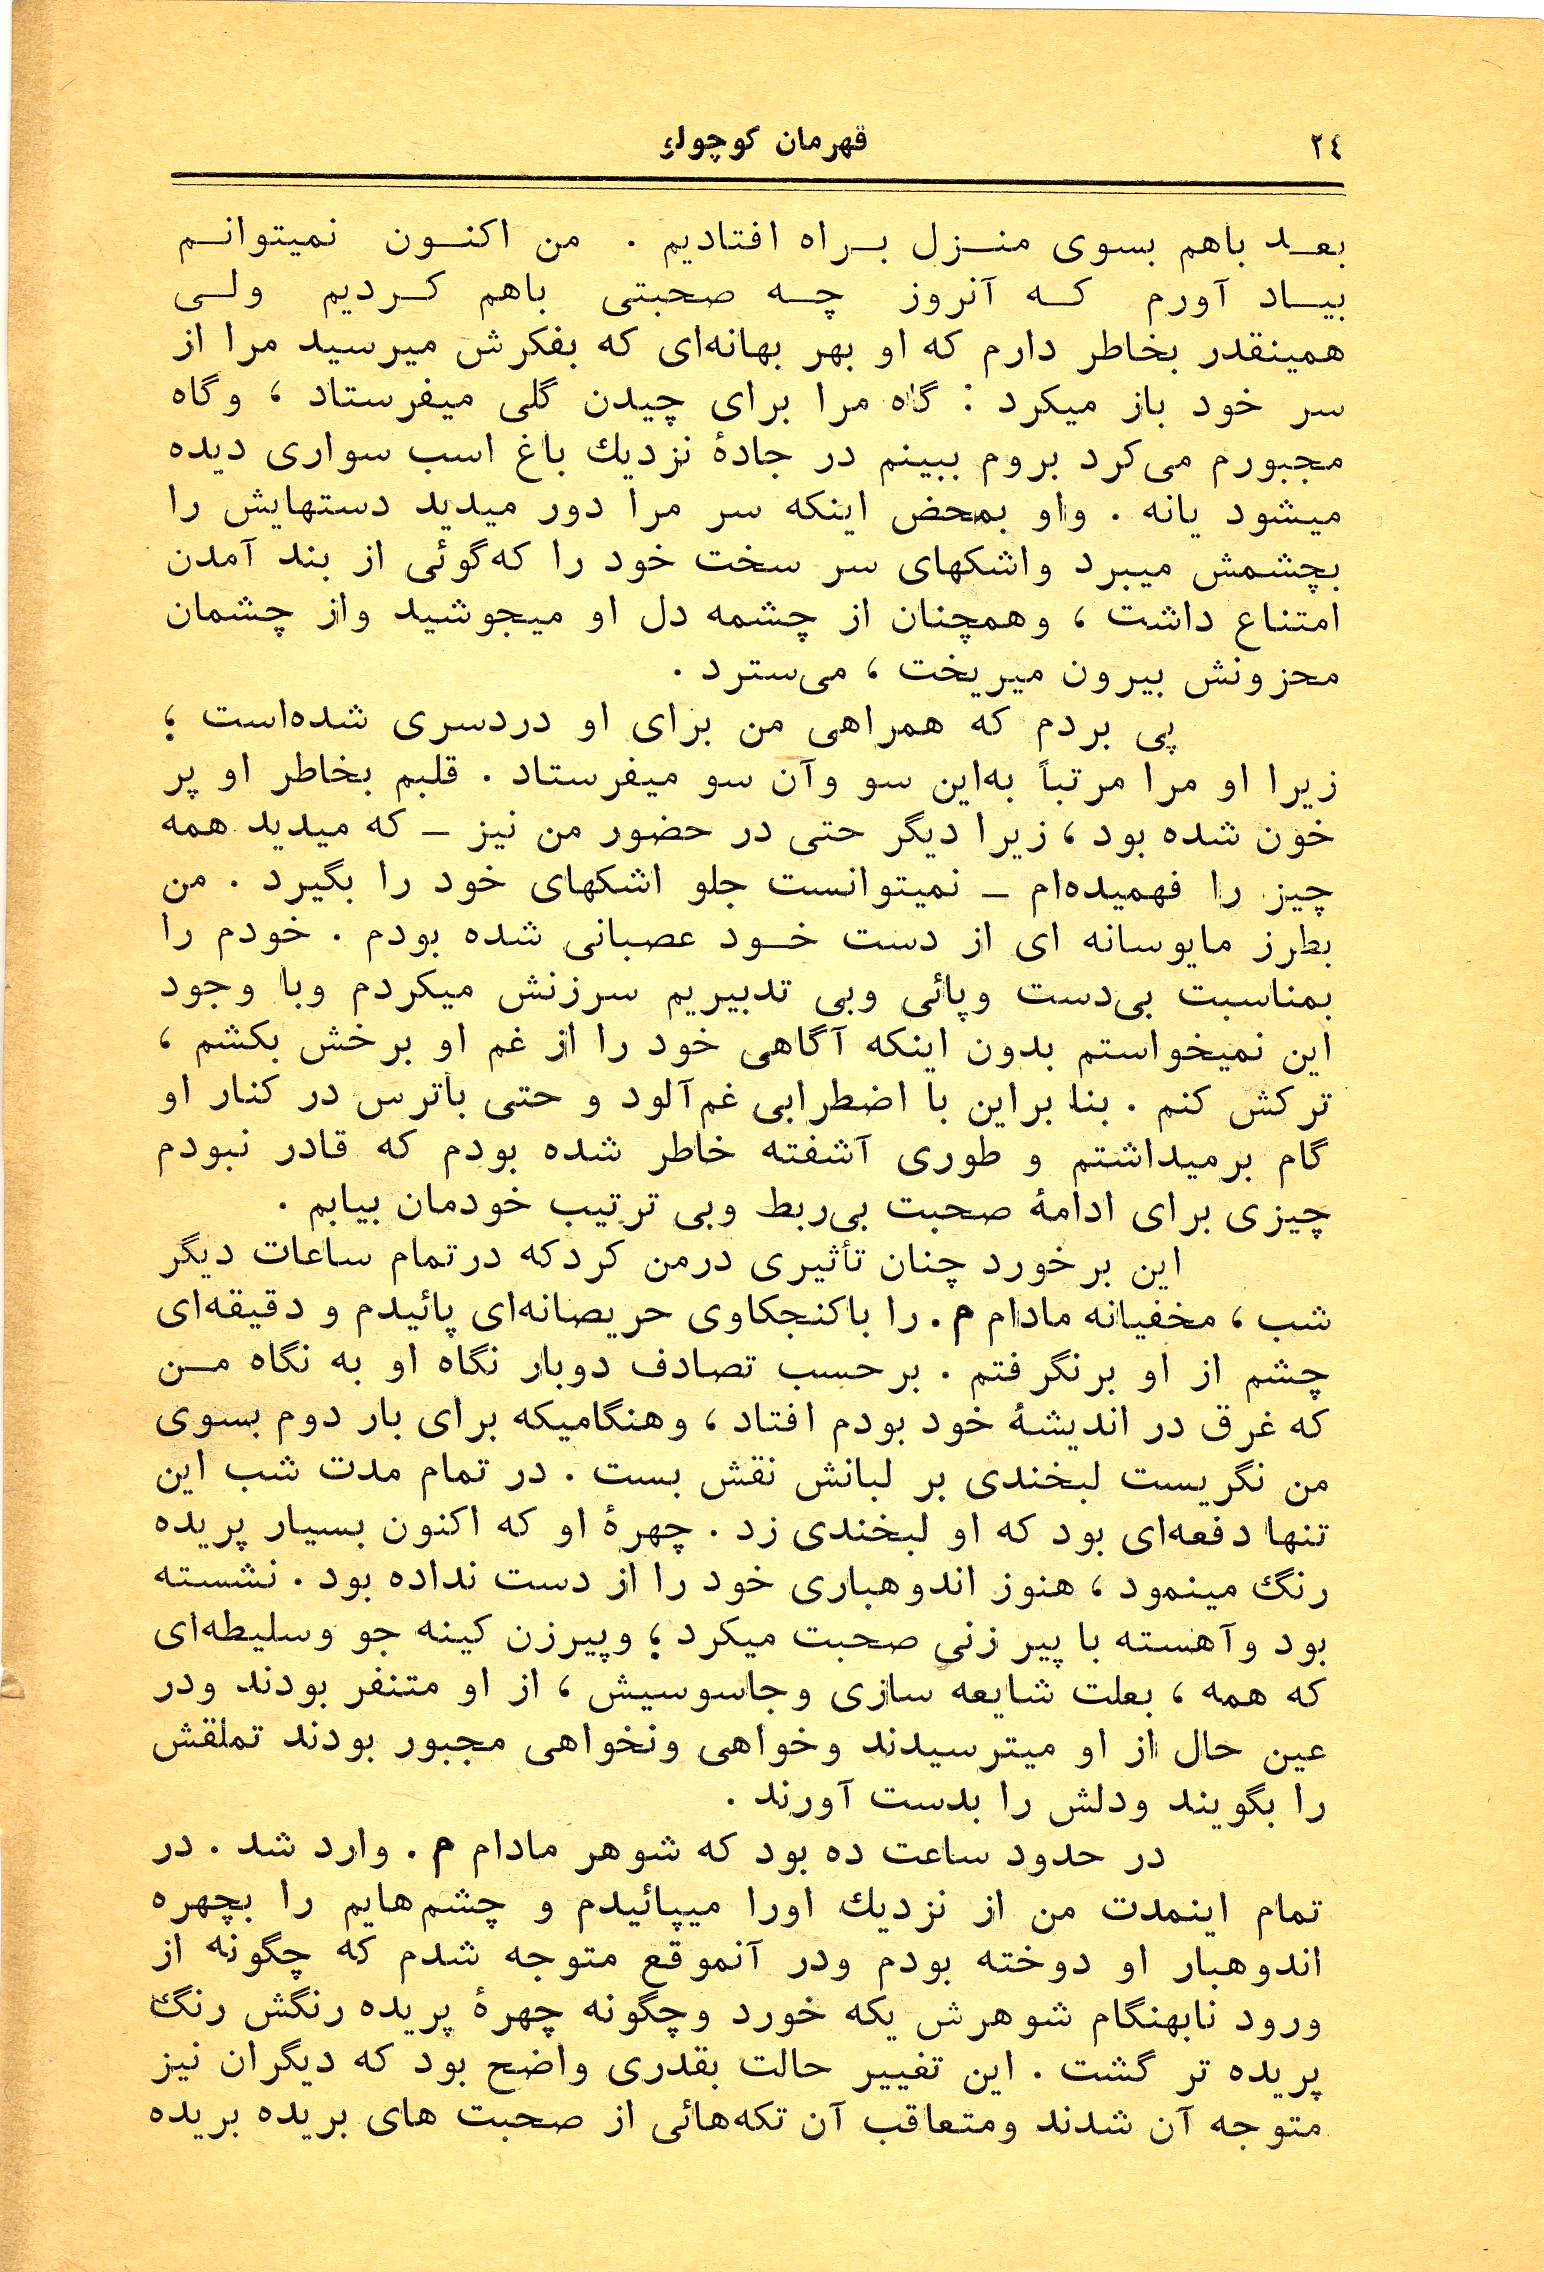 ۲٤
قهرمان کوچولو
بعد باهم بسوی منزل براه افتادیم . من اکنون نمیتوانم
بیاد آورم که آنروز چه صحبتی باهم کردیم ولی
همینقدر بخاطر دارم که او بهر بهانه‌ای که بفکرش میرسید مرا از
سر خود باز میکرد : گاه مرا برای چیدن گلی میفرستاد ، وگاه
مجبورم می‌کرد بروم ببینم در جادهٔ نزدیك باغ اسب سواری دیده
میشود یانه . واو بمحض اینکه سر مرا دور میدید دستهایش را
بچشمش میبرد واشکهای سر سخت خود را که‌گوئی از بند آمدن
امتناع داشت ، وهمچنان از چشمه دل او میجوشید واز چشمان
محزونش بیرون میریخت ، می‌سترد .
پی بردم که همراهی من برای او دردسری شده‌است ؛
زیرا او مرا مرتباً به‌این سو وآن سو میفرستاد . قلبم بخاطر او پر
خون شده بود ، زیرا دیگر حتی در حضور من نیز ــ که میدید همه
چیز را فهمیده‌ام ــ نمیتوانست جلو اشکهای خود را بگیرد . من
بطرز مایوسانه ای از دست خود عصبانی شده بودم . خودم را
بمناسبت بی‌دست وپائی وبی تدبیریم سرزنش میکردم وبا وجود
این نمیخواستم بدون اینکه آگاهی خود را از غم او برخش بکشم ،
ترکش کنم . بنا براین با اضطرابی غم‌آلود و حتی باترس در کنار او
گام برمیداشتم و طوری آشفته خاطر شده بودم که قادر نبودم
چیزی برای ادامهٔ صحبت بی‌ربط وبی ترتیب خودمان بیابم .
این برخورد چنان تأثیری درمن کردکه درتمام ساعات دیگر
شب ، مخفیانه مادام م . را باکنجکاوی حریصانه‌ای پائیدم و دقیقه‌ای
چشم از او برنگرفتم . برحسب تصادف دوبار نگاه او به نگاه من
که غرق در اندیشهٔ خود بودم افتاد ، وهنگامیکه برای بار دوم بسوی
من نگریست لبخندی بر لبانش نقش بست . در تمام مدت شب این
تنها دفعه‌ای بود که او لبخندی زد . چهرهٔ او که اکنون بسیار پریده
رنگ مینمود ، هنوز اندوهباری خود را از دست نداده بود . نشسته
بود وآهسته با پیر زنی صحبت میکرد ؛ وپیرزن کینه جو وسلیطه‌ای
که همه ، بعلت شایعه سازی وجاسوسیش ، از او متنفر بودند ودر
عین حال از او میترسیدند وخواهی ونخواهی مجبور بودند تملقش
را بگویند ودلش را بدست آورند .
در حدود ساعت ده بود که شوهر مادام م . وارد شد . در
تمام اینمدت من از نزدیك اورا میپائیدم و چشم‌هایم را بچهره
اندوهبار او دوخته بودم ودر آنموقع متوجه شدم که چگونه از
ورود نابهنگام شوهرش یکه خورد وچگونه چهرهٔ پریده رنگش رنگ
پریده تر گشت . این تغییر حالت بقدری واضح بود که دیگران نیز
متوجه آن شدند ومتعاقب آن تکه‌هائی از صحبت های بریده بریده